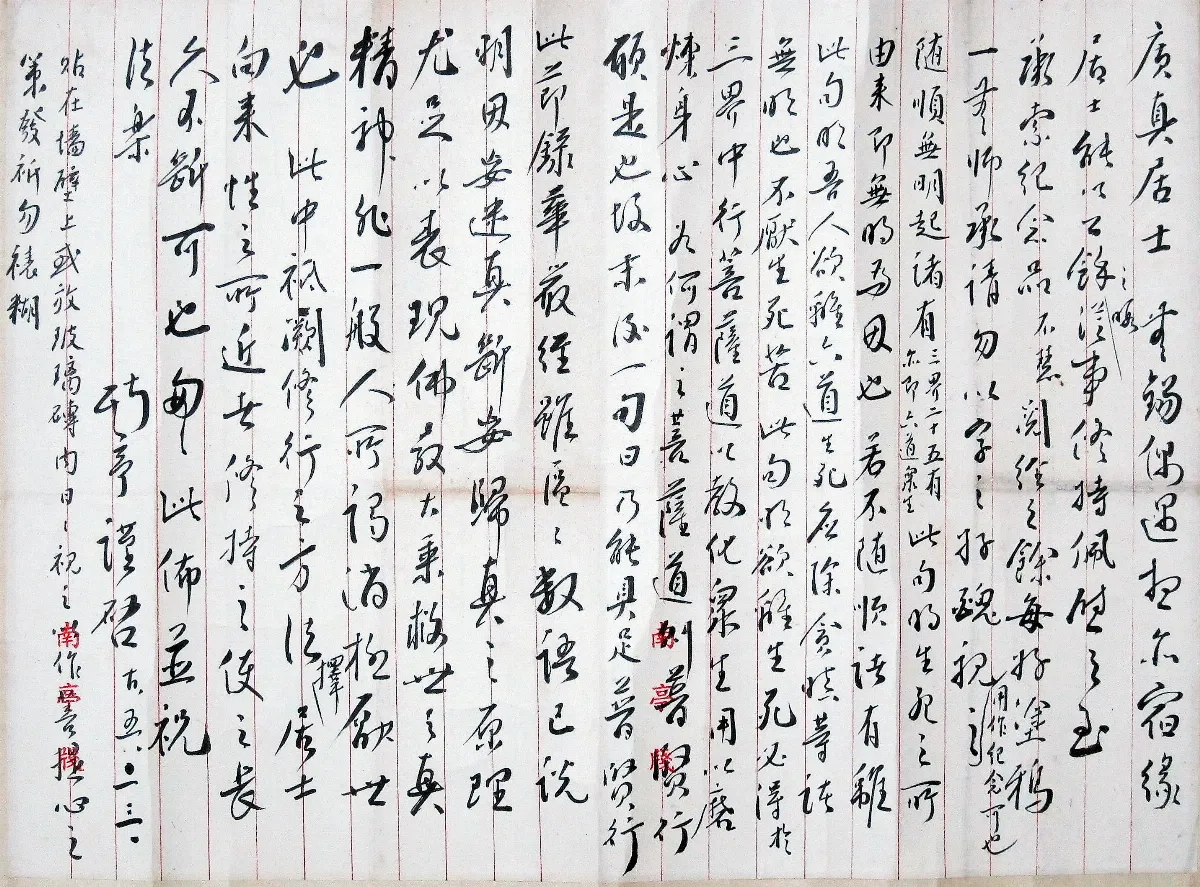 廣真居士 無錫偶遇想亦宿緣
居士能以公餘從事修持佩慰之至
之暇
承索紀念品不慧閱經之餘每好塗鴉
一無師承請勿以字之好醜視之
用作紀念可也
随順無明起諸有三界二十五有亦即六道眾生此句明生死之所
由来即無明為因也 若不随順諸有離
此句明吾人欲離六道生死應除貪嗔等諸
無明也不厭生死苦此句明欲離生死必得於
三界中行菩薩道以教化眾生用以磨
煉身心 為何謂之菩薩道則普賢行
願是也故末後一句曰乃能具足普賢行
此節錄華嚴經雖區之數語已説
明因妄迷真斷妄歸真之原理
尤足以表現佛教大乘救世之真
精神非一般人所謂消極厭世
也 此中祇闕修行之方法居士
擇
向来性之所近者修持之使之長
久不斷可也匆此佈並祝
法樂
南亭謹啓 古 五八 二 三
貼在墻壁上或放玻璃磚内日日視之當作音提心之
策發祈勿裱糊
南亭
南亭